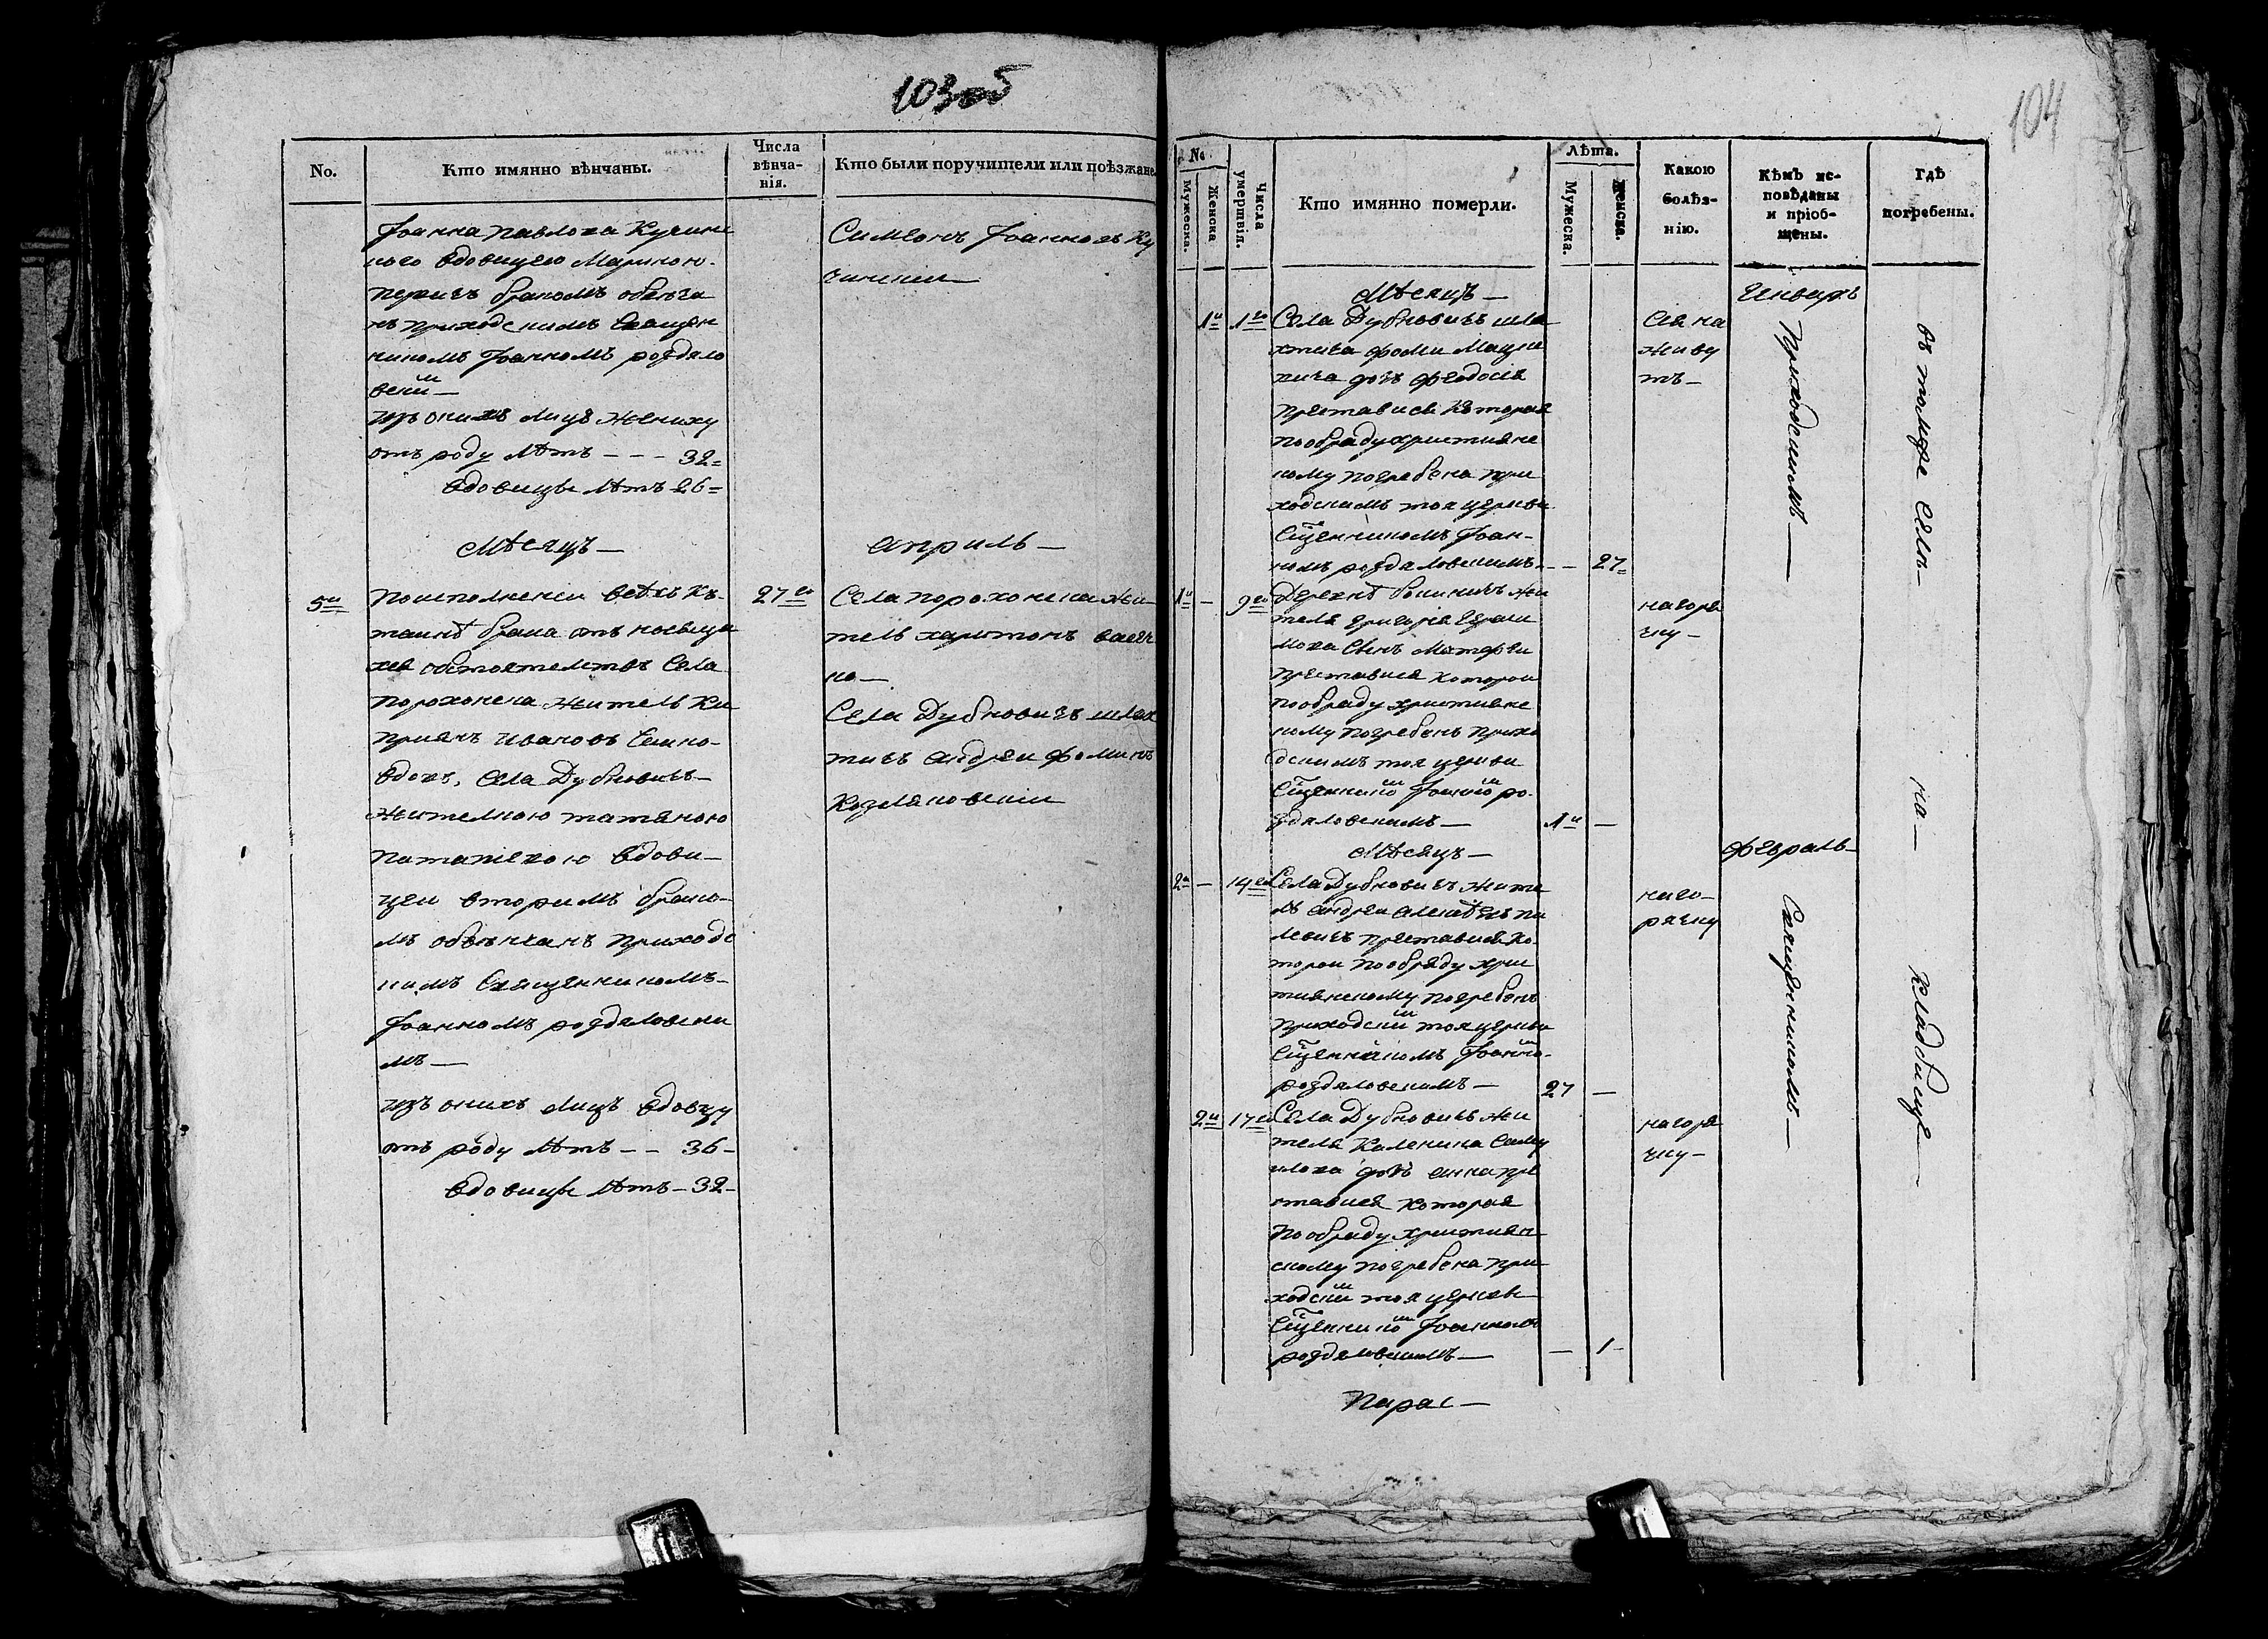 103об
No.
Кто имянно вѣнчаны.
Числа
вѣнча-
нія.
Кто были поручители или поѣзжане
Іоанна павлова Кучинс
кого вдовицею Мариною
первимъ бракомъ обвѣнча
нъ приходскимъ Священ
никомъ Іоанномъ роздяло
вскимъ —
изъ онихъ лицъ жениху
отъ роду лѣтъ - - - 32=
вдовицы лѣтъ 26=
Симеонъ Іоанновъ Ку
чинскии —
Мѣсяцъ — априль —
5й
По исполненіи всѣхъ къ
таинѣ брака
обстоятелствъ Села
порохонска житель Ки
приянъ ивановъ
вдовъ, Села Дубновичъ —
жителкою татяною
вдови —
цеи вторимъ брако-
мъ обвѣнчанъ приходс
кимъ Священникомъ —
Іоанномъ роздяловски
мъ —
изъ онихъ лицъ вдовцу
отъ роду лѣтъ - - 36 -
вдовицы лѣтъ - 32 -
27го
Села порохонска жи
тель харитонъ
ко —
Села Дубновичъ шлях
тичъ андреи фоминъ
Козляковскіи
104
№
Мужеска.
Женска
Числа
умертвіл.
Кто имянно померли.
Лѣта.
Мужеска.
Женска.
Какою
болѣз-
нію.
Кѣмъ ис-
повѣданы
и пріоб-
щены.
Гдѣ
погребены.
Мѣсяцъ — Генварь
1я 1го Села Дубновичъ шля
хтича фоми
дочь феодосія
преставися которая
по обряду християнс
кому погребена при
ходскимъ тоя церкви
Сщенникомъ Іоан-
номъ роздяловскимъ - — 27=
Сея на
живо
тъ —
1й — 9го Деревнѣ жи
теля григорія гераси
мова Сынъ Матфеи
преставися которои
по обряду християнс
кому погребенъ прихо
дскимъ тоя церкви
Сщенникомъ Іоанномъ ро
здяловскимъ — 1й —
на горя
чку —
Мѣсяцъ — февраль —
2й — 14го Села Дубновичъ жите
ль андреи
преставися ко
торои по обряду хри
тиянскому погребенъ
приходскимъ тоя церкви
Сщенникомъ Іоанно
роздяловскимъ — 27 —
на го —
рячку
2я 17го Села Дубновичъ жи
теля Каленика Саму
илова дочь анна пре
ставися которая
по обряду християн
скому погребена при
ходскимъ тоя церкви
Сщенникомъ Іоанномъ
роздяловскимъ — — 1 —
на горя
чку —
Приходскимъ —
Священникомъ —
въ томже Селѣ —
на —
Кладбище —
Парас —